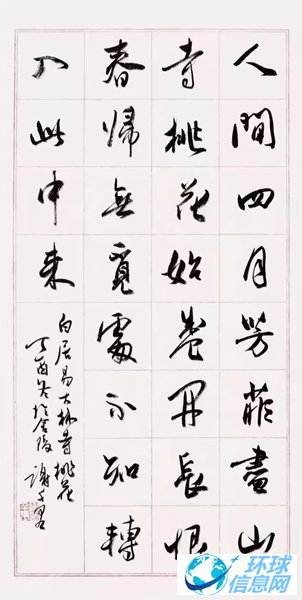 人間四月芳菲盡山
寺桃花始盛开長恨
春歸無覓處不知轉
入此中来
白居易大林寺桃花
丁酉冬於金陵謝
环球
信息网